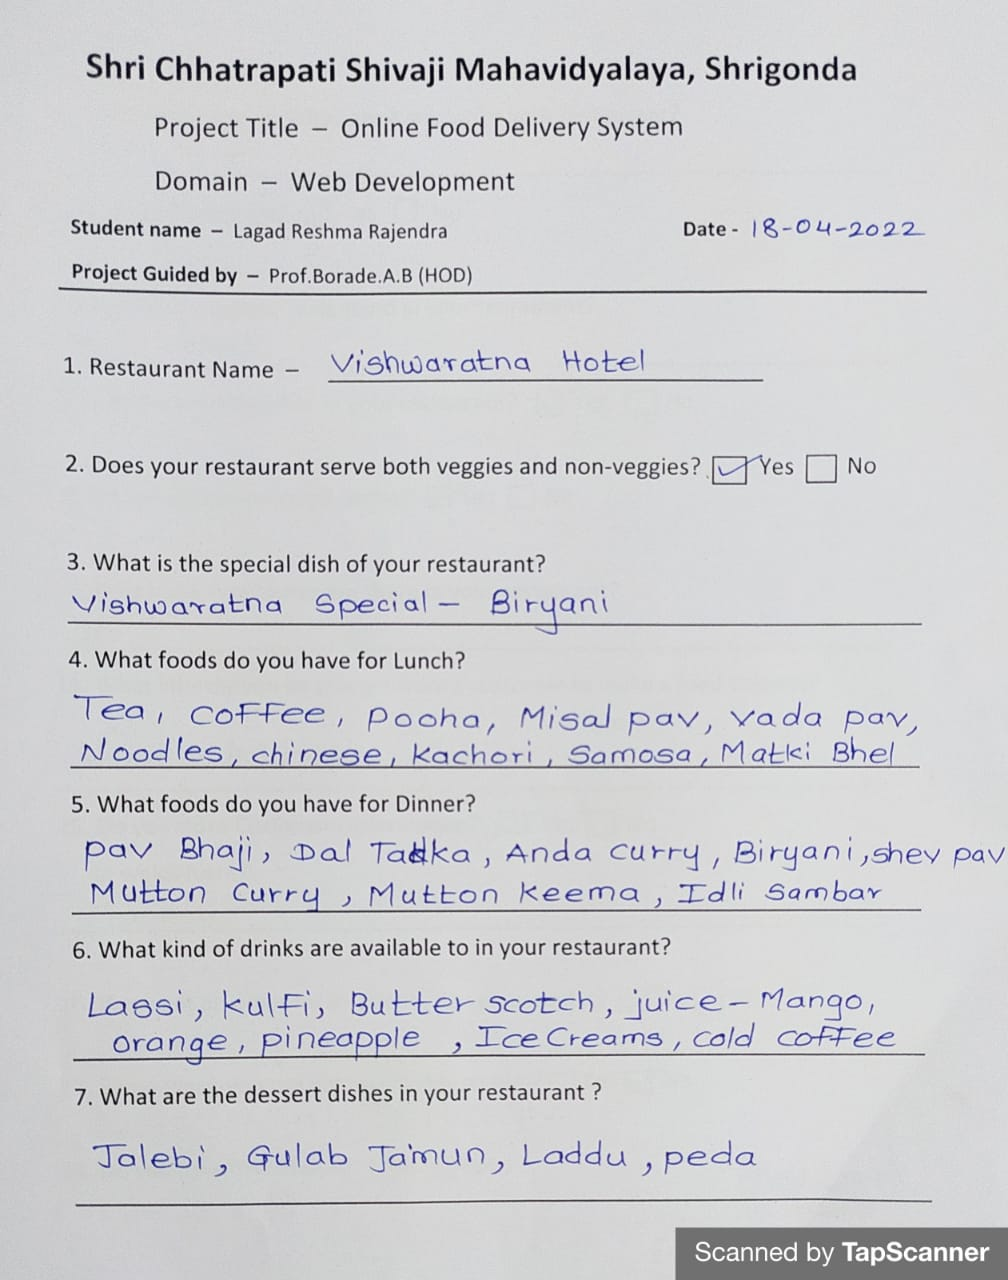 Shri Chhatrapati Shivaji Mahavidyalaya, Shrigonda
Project Title – Online Food Delivery System
Domain – Web Development
Student name – Lagad Reshma Rajendra Date - 18-04-2022
Project Guided by – Prof.Borade.A.B (HOD)
1. Restaurant Name – Vishwaratna Hotel
2. Does your restaurant serve both veggies and non-veggies? Yes No
3. What is the special dish of your restaurant?
Vishwaratna Special – Biryani
4. What foods do you have for Lunch?
Tea, Coffee, Pooha, Misal pav, vada pav,
Noodles, chinese, Kachori, Samosa, Matki Bhel
5. What foods do you have for Dinner?
pav Bhaji, Dal Tadka, Anda curry, Biryani, shev pav
Mutton Curry, Mutton Keema, Idli Sambar
6. What kind of drinks are available to in your restaurant?
Lassi, Kulfi, Butter scotch, juice – Mango,
orange, pineapple, Ice Creams, cold coffee
7. What are the dessert dishes in your restaurant ?
Jalebi, Gulab Jamun, Laddu, peda
Scanned by TapScanner